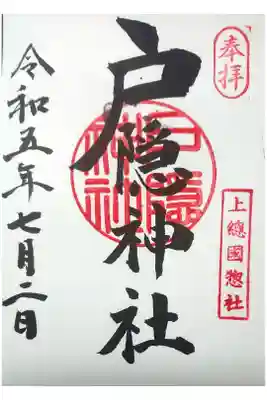 奉拝
上總國惣社
戸隠神社
戸隠神社
令和五年七月二日